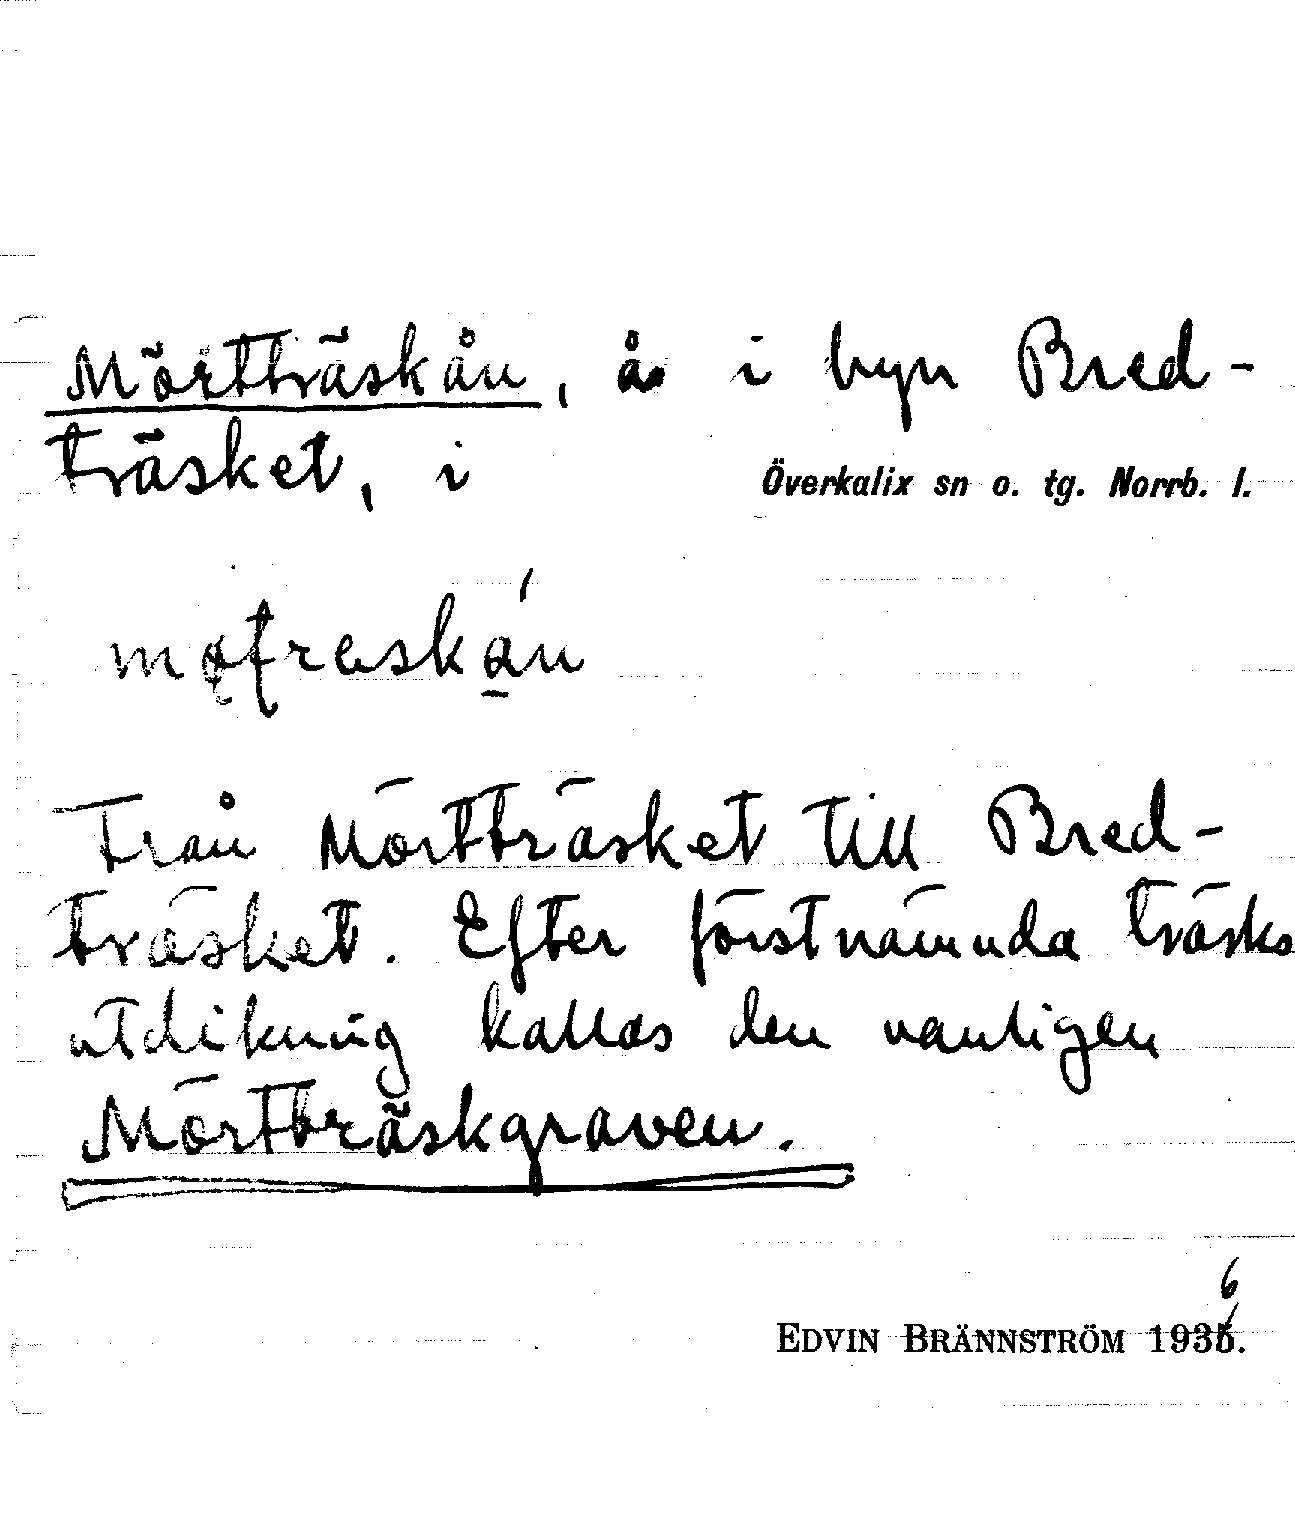 Mörtträskån, å i byn Bred-
träsket, i Överkalix sn o. tg. Norrb. l.
Från Mörtträsket till Bred-
träsket. Efter förstnämnda träsks
utdikning kallas den vanligen
Mörtträskgraven.
6
EDVIN BRÄNNSTRÖM 1935.